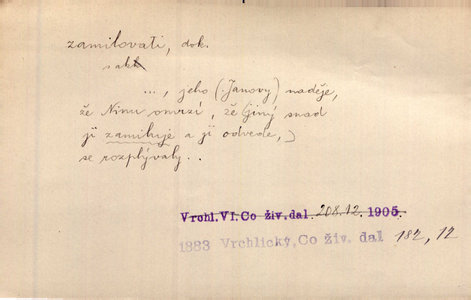 zamilovati, dok.
..., jeho (Janovy) naděje,
že Ninu omrzí, že (jiný snad
ji zamiluje a ji odvede,)
se rozplývaly..
Vrchl. VI. Co živ. dal. 208.12. 1905.
1883 Vrchlický, Co živ. dal 182, 12